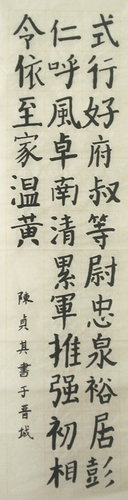 式行好府叔等尉忠泉裕居彭
仁呼風卓南清累軍推强初相
令依至家温黄
陳貞其書于晋城